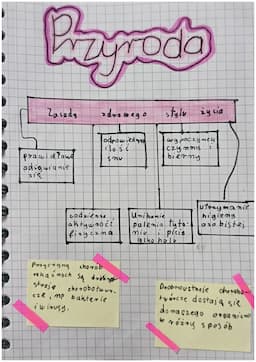 Przyroda
Zasady zdrowego stylu życia
prawidłowe
odżywianie
się
odpowiednia
ilość
snu
wypoczynek
czynny i
bierny
codzienna
aktywność
fizyczna
Unikanie
palenia tyto-
niu i picia
alkoholu
utrzymanie
higieny
osobistej
Przyczyną chorób
zakaźnych są
chorobotwór-
cze, np bakterie
i wirusy.
chorobo-
twórcze dostają się
do naszego organizmu
w różny sposób